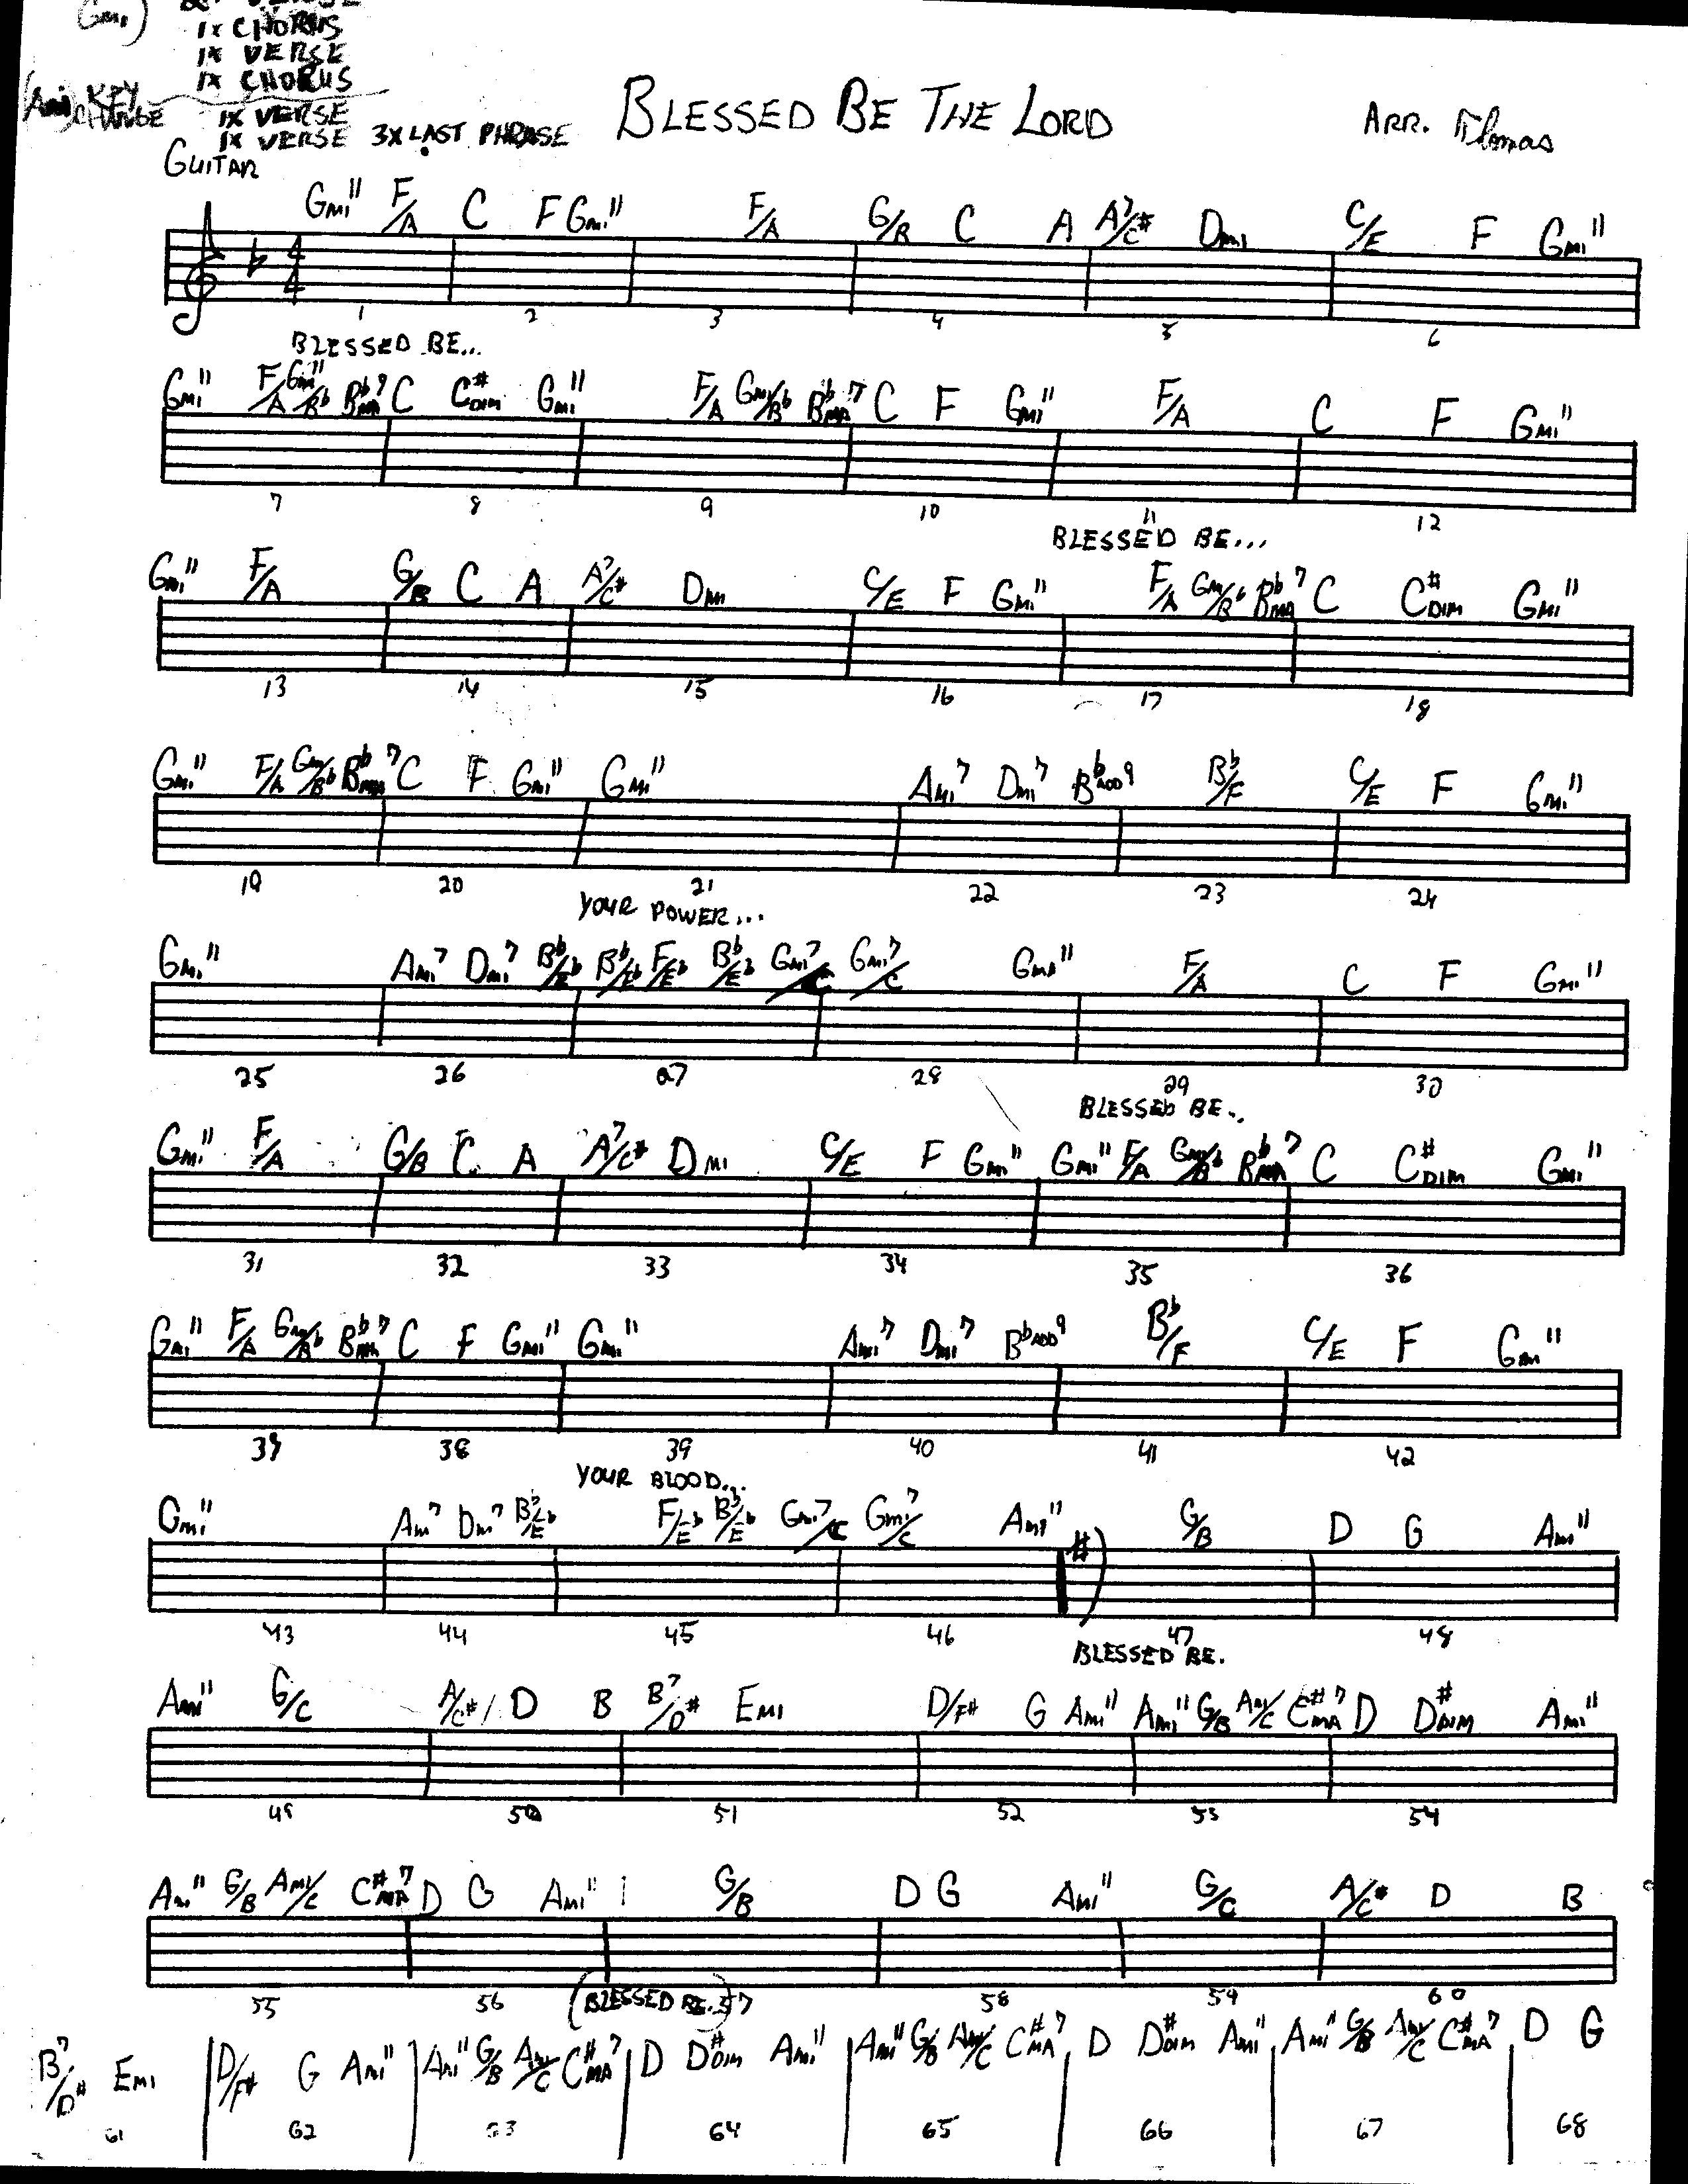 Gmi)
1X CHORUS
1X VERSE
1X CHORUS
(Ami) KEY CHANGE 1X VERSE
1X VERSE 3X LAST PHRASE
BLESSED BE THE LORD
ARR.
GUITAR
Gmi11 F/A C F Gmi11 F/A G/B C A A7/C# Dmi C/E F Gmi11
4 4
1 2 3 4 5 6
BLESSED BE...
Gmi11 F/A Gmi11/Bb Bbma7 C C#DIM Gmi11 F/A Gmi/Bb Bbma7 C F Gmi11 F/A C F Gmi11
7 8 9 10 11 12
BLESSED BE...
Gmi11 F/A G/B C A A7/C# Dmi C/E F Gmi11 F/A Gmi/Bb Bbma7 C C#DIM Gmi11
13 14 15 16 17 18
Gmi11 F/A Gmi/Bb Bbma7 C F Gmi11 Gmi11 Ami7 Dmi7 BbADD9 Bb/F C/E F Gmi11
19 20 21 22 23 24
YOUR POWER...
Gmi11 Ami7 Dmi7 Bb/Eb Bb/Eb F/Eb Bb/Eb Gmi7/C Gmi7/C Gmi11 F/A C F Gmi11
25 26 27 28 29 30
BLESSED BE..
Gmi11 F/A G/B C A A7/C# Dmi C/E F Gmi11 Gmi11 F/A Gmi/Bb Bbma7 C C#DIM Gmi11
31 32 33 34 35 36
Gmi11 F/A Gmi/Bb Bbma7 C F Gmi11 Gmi11 Ami7 Dmi7 BbADD9 Bb/F C/E F Gmi11
37 38 39 40 41 42
YOUR BLOOD...
Gmi11 Ami7 Dmi7 Bb/Eb F/Eb Bb/Eb Gmi7/C Gmi7/C Ami11 G/B D G Ami11
43 44 45 46 47 48
BLESSED BE.
Ami11 G/C A/C# D B B7/D# Emi D/F# G Ami11 Ami11 G/B Ami/C C#ma7 D D#DIM Ami11
49 50 51 52 53 54
Ami11 G/B Ami/C C#ma7 D G Ami11 G/B D G Ami11 G/C A/C# D B
55 56 (BLESSED BE..) 57 58 59 60
B7/D# Emi D/F# G Ami11 Ami11 G/B Ami/C C#ma7 D D#DIM Ami11 Ami11 G/B Ami/C C#ma7 D D#DIM Ami11 Ami11 G/B Ami/C C#ma7 D G
61 62 63 64 65 66 67 68